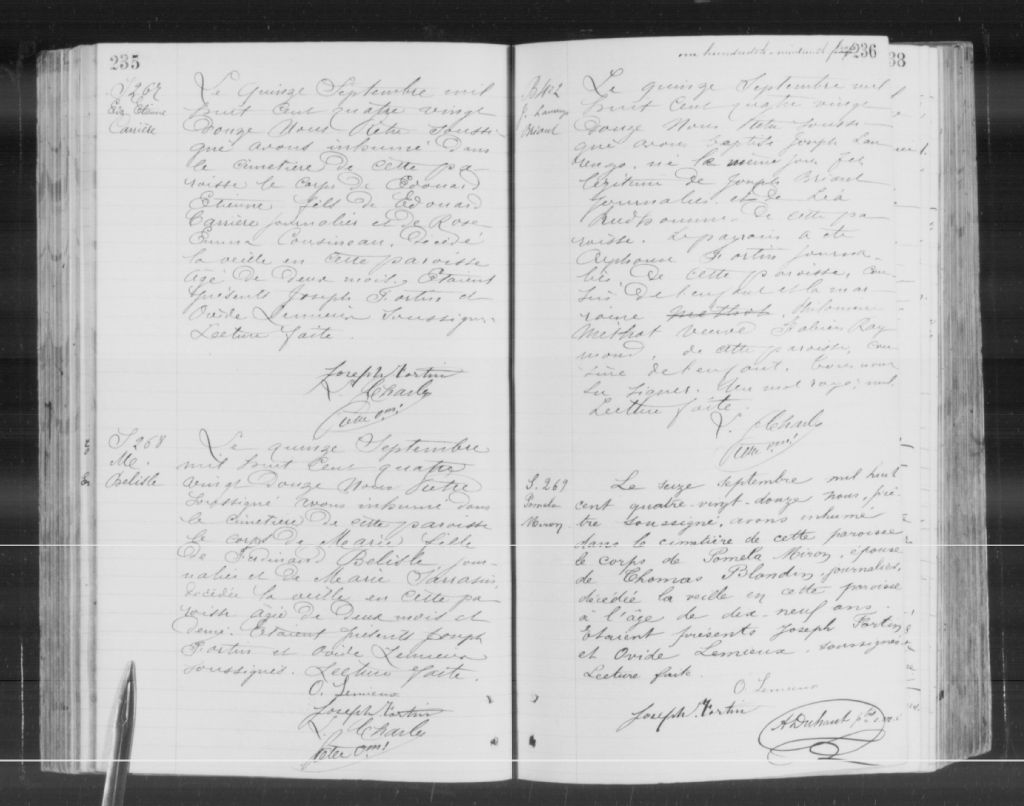 235
S 267
Edo. Etienne
Carrière
Le quinze Septembre mil
huit cent quatre vingt
douze Nous Ptre soussi-
gné avons inhumé dans
le cimetière de cette pa-
roisse le corps de Edouard
Etienne fils de Edouard
Carrière journalier et de Rose
Emma Cousineau, décédé
la veille en cette paroisse
âgé de deux mois. Etaient
présents Joseph Fortin et
Ovide Lemieux soussignés
Lecture faite.
Joseph Fortin
Charles
Ptre
S 268
M.
Belisle
Le quinze Septembre
mil huit cent quatre
vingt douze Nous Prêtre
soussigné avons inhumé dans
le cimetière de cette paroisse
le corps de Marie fille
de Ferdinand Belisle jour-
nalier et de Marie Sarrasin,
décédée la veille en cette pa
roisse âgée de deux mois et
demi. Etaient présents Joseph
Fortin et Ovide Lemieux
soussignés. Lecture faite.
O. Lemieux
Joseph Fortin
Charles
one hundredth - nineteenth 236
38
B 402
J.
Briant
Le quinze Septembre mil
huit cent quatre vingt
douze Nous Ptre soussi-
gné avons baptisé Joseph Lau
né le même jour fils
légitime de Joseph Briant
journalier et de Léa
Prudhomme de cette pa
roisse. Le parrain a été
Alphonse Fortin journa-
lier de cette paroisse, cou-
sin de l'enfant et la mar-
raine Philomène
Methot veuve Fabien Ray
mond, de cette paroisse, cou
sine de l'enfant.
su signer. Un mot rayé nul
Lecture faite.
Charles
S. 269
Pomela
Miron
Le seize Septembre mil huit
cent quatre-vingt-douze nous, prê-
tre soussigné, avons inhumé
dans le cimetière de cette paroisse
le corps de Pomela Miron, épouse
de Thomas Blondin journalier,
décédée la veille en cette paroisse
à l'âge de dix-neuf ans.
Etaient présents Joseph Fortin
et Ovide Lemieux soussignés
Lecture faite.
O. Lemieux
Joseph Fortin
ADuhaut ptre